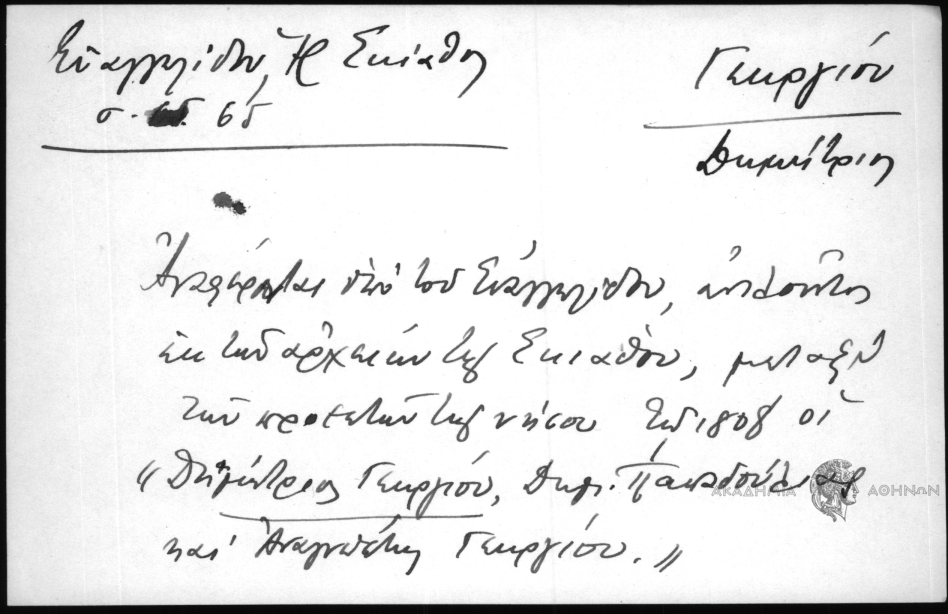 Εὐαγγελίδου, Ἡ Σκιάθος
σ. 65
Γεωργίου
Δημήτριος
Ἀναφέρεται ὑπό τοῦ Εὐαγγελίδου, ἀντλοῦντος
ἐκ τῶν ἀρχείων τῆς Σκιάθου, μεταξύ
τῶν προεστῶν τῆς νήσου τῷ 1808 οἱ
"Δημήτριος Γεωργίου, Δημ. Παπαδούλιας
καί Ἀναγνώστης Γεωργίου."
ΑΚΑΔΗΜΙΑ ΑΘΗΝΩΝ